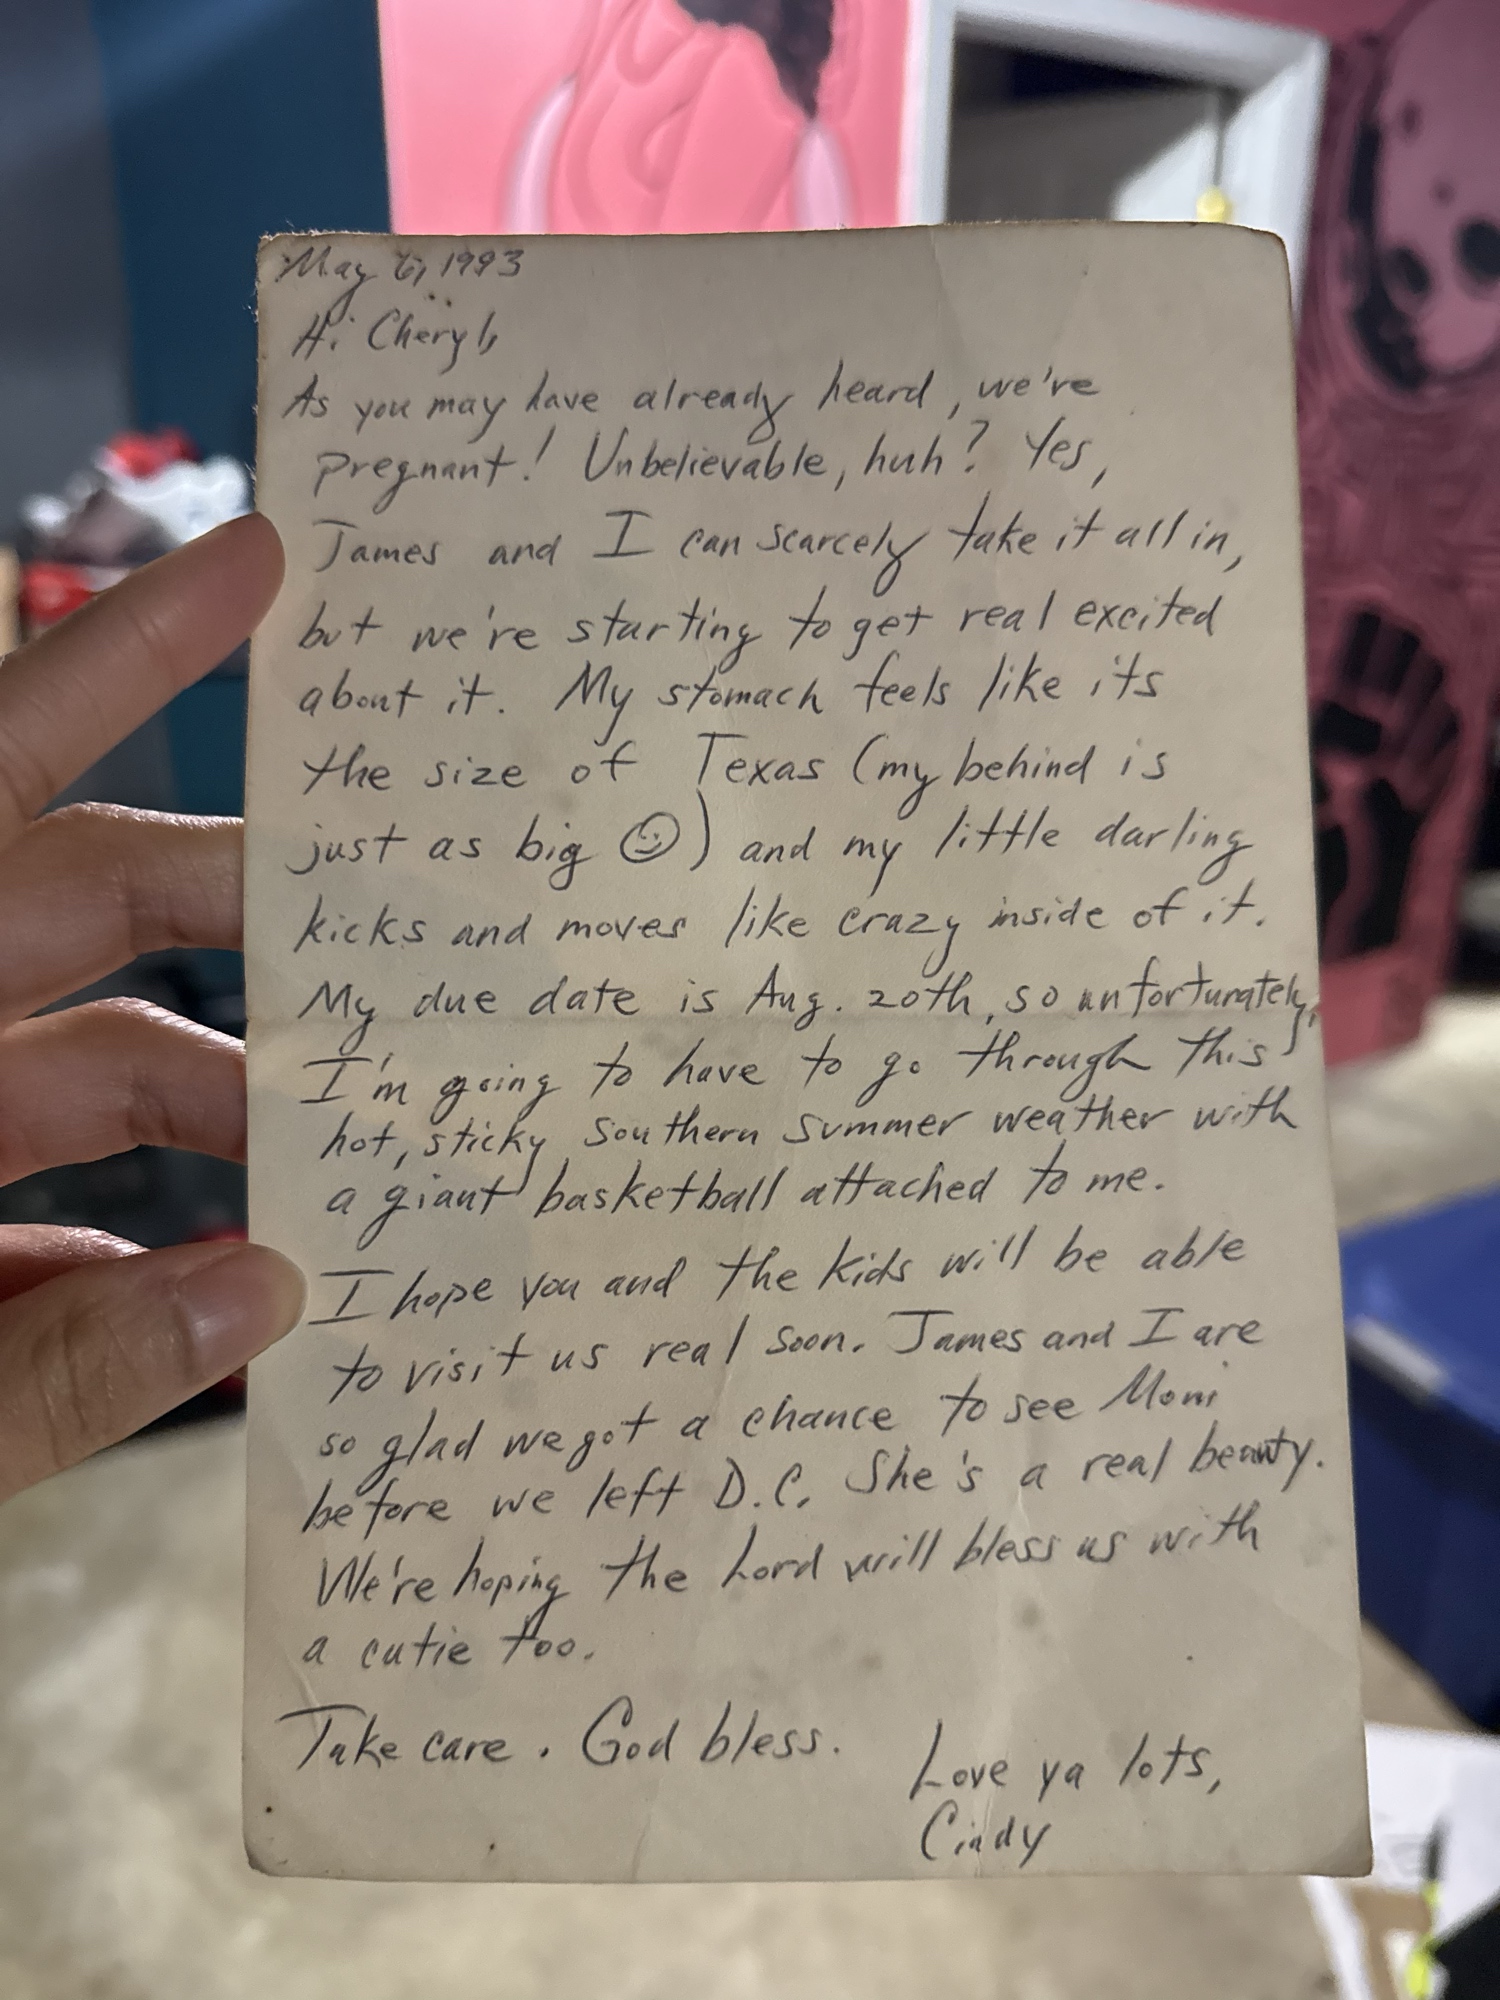 May 6, 1993
Hi Cheryl,
As you may have already heard, we're
pregnant! Unbelievable, huh? Yes,
James and I can scarcely take it all in,
but we're starting to get real excited
about it. My stomach feels like its
the size of Texas (my behind is
just as big ☺) and my little darling
kicks and moves like crazy inside of it.
My due date is Aug. 20th, so unfortunately,
I'm going to have to go through this
hot, sticky Southern summer weather with
a giant basketball attached to me.
I hope you and the kids will be able
to visit us real soon. James and I are
so glad we got a chance to see
before we left D.C. She's a real beauty.
We're hoping the Lord will bless us with
a cutie too.
Take care. God bless.
Love ya lots,
Cindy